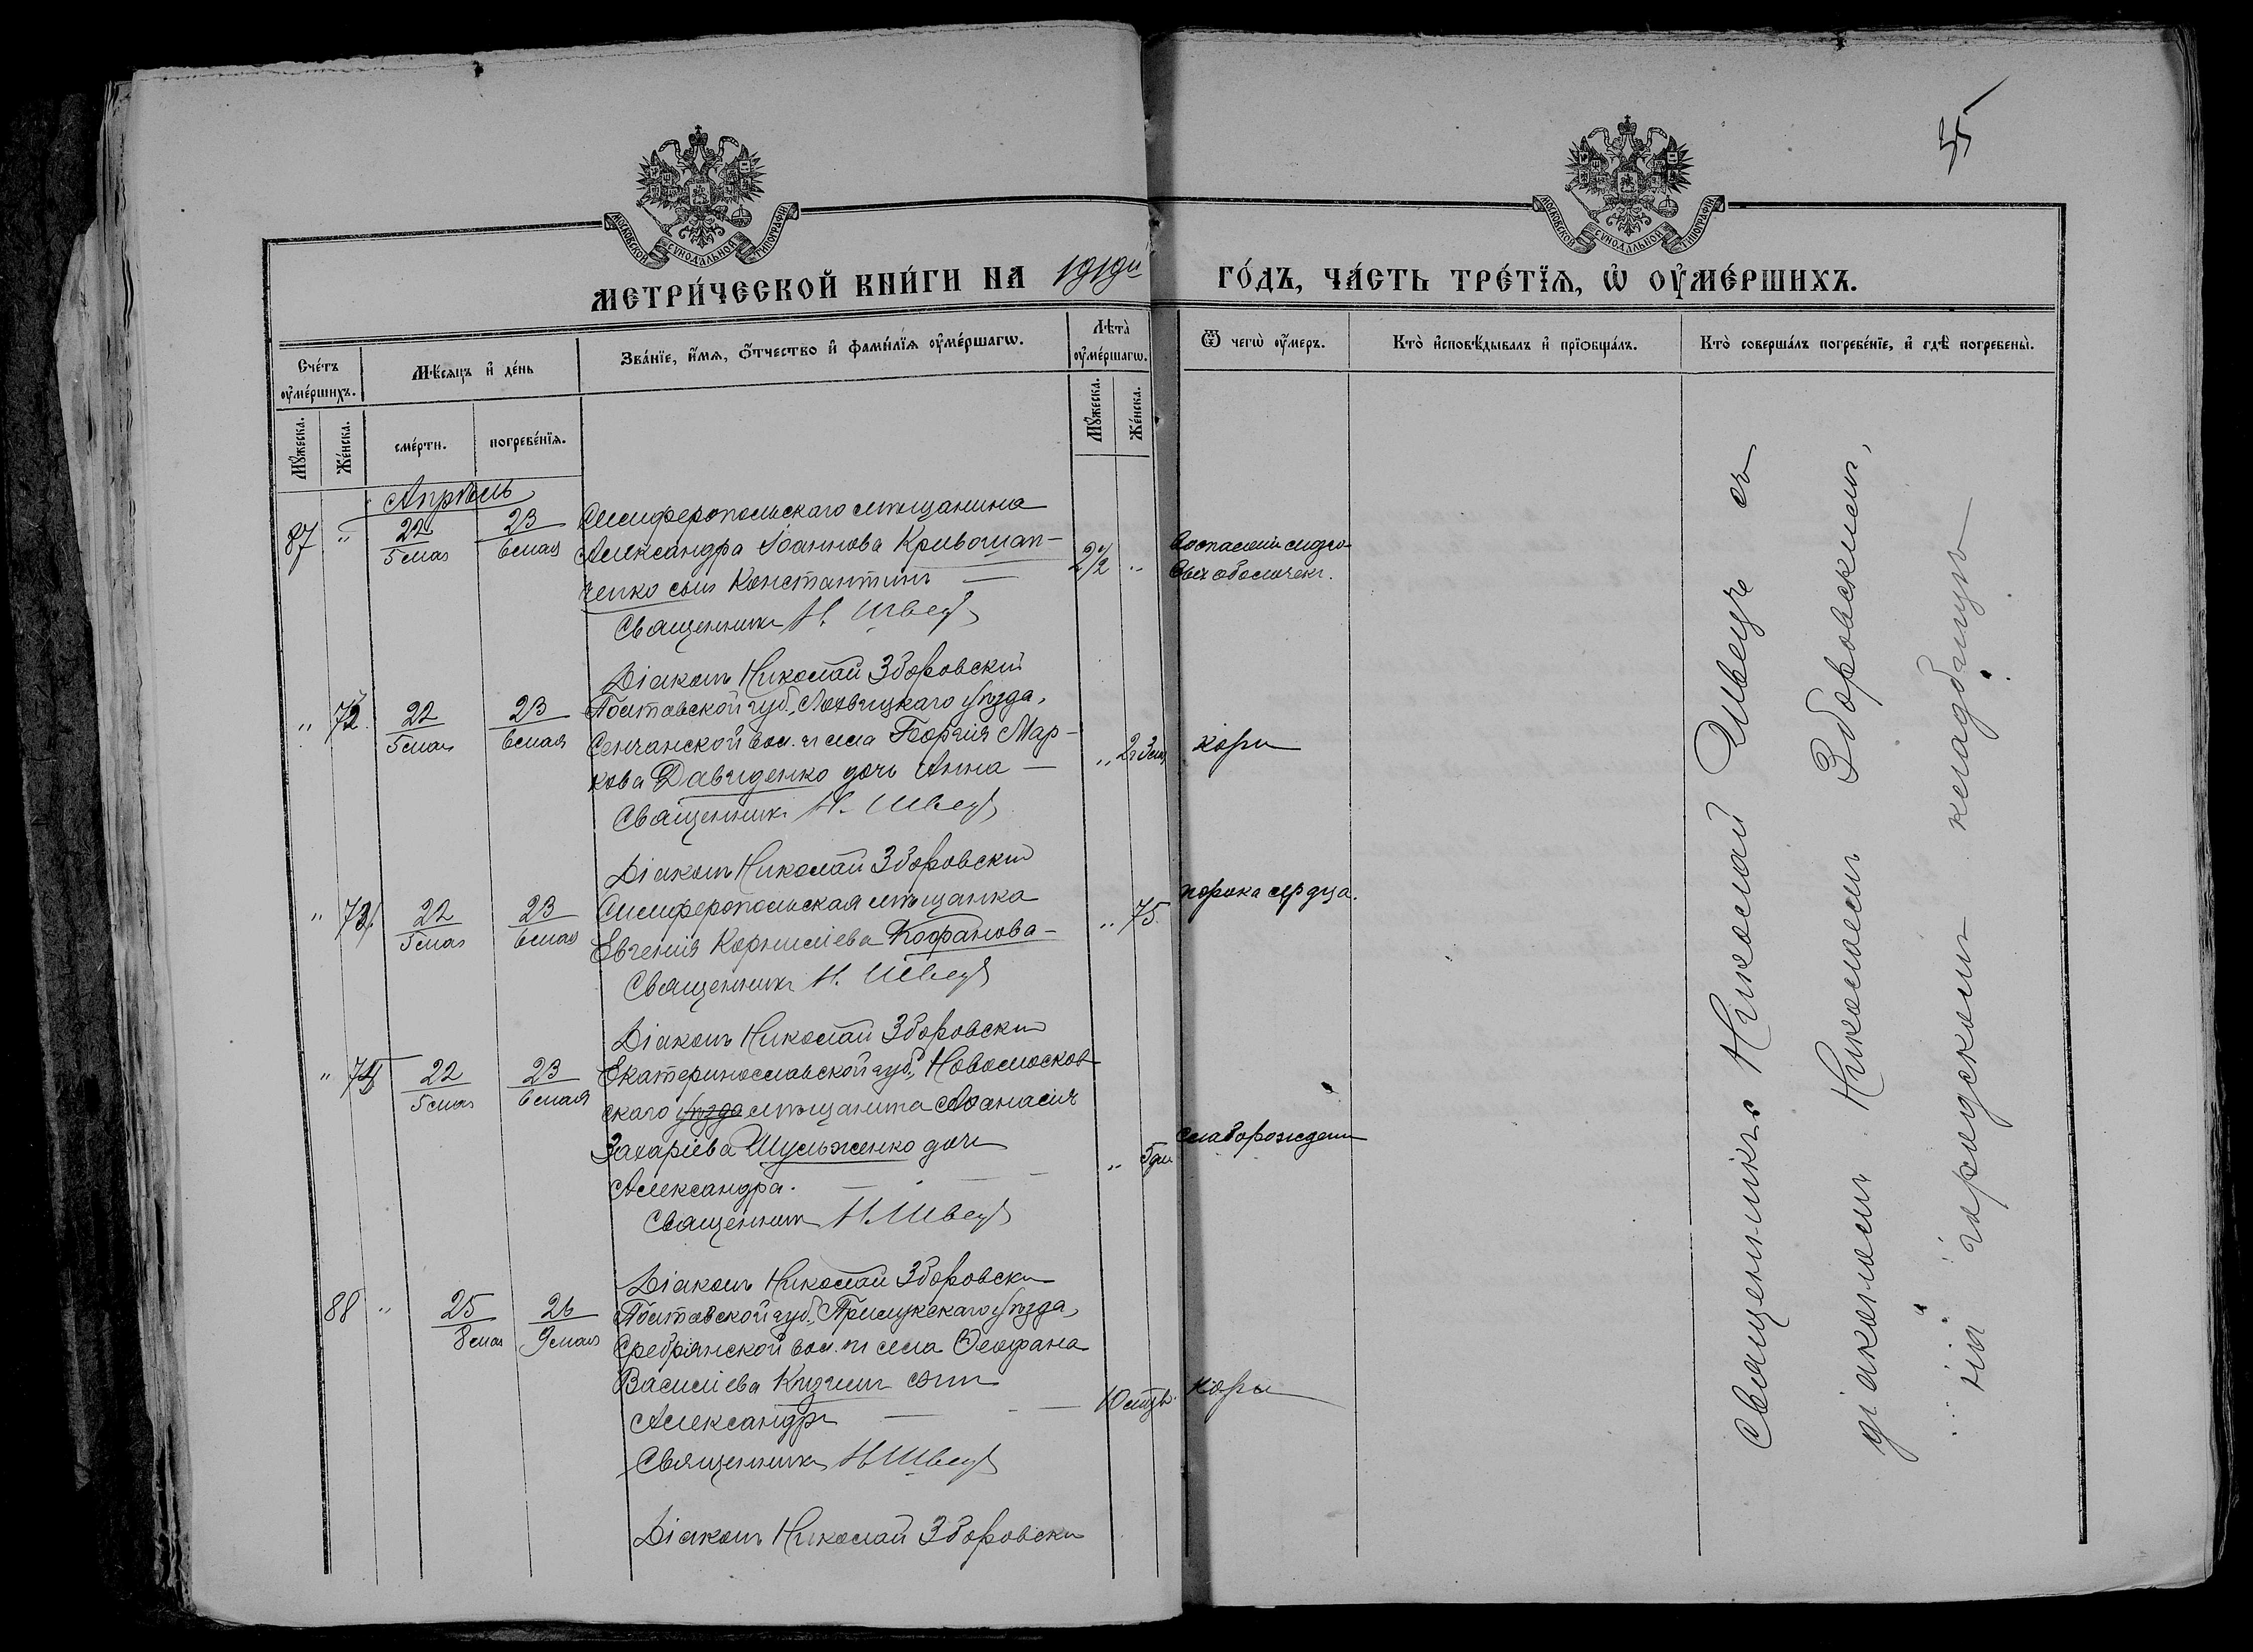 55
МОСКОВСКОЙ СѴНОДАЛЬНОЙ ТИПОГРАФІИ
МОСКОВСКОЙ СѴНОДАЛЬНОЙ ТИПОГРАФІИ
МЕТРИ́ЧЕСКОЙ КНИ́ГИ НА 1919й ГО́ДЪ, ЧА́СТЬ ТРЕ́ТЇѦ, Ѡ҆ ОУ҆МЕ́РШИХЪ.
Сче́тъ оу҆ме́ршихъ.
Мѣ́сѧцъ и҆ де́нь
Зва́нїе, и҆́мѧ, ѻ҆́тчество и҆ фами́лїѧ оу҆ме́ршагѡ.
Лѣта̀ оу҆ме́ршагѡ.
Ѿ чегѡ̀ оу҆́меръ.
Кто̀ и҆сповѣ́дывалъ и҆ прїѡбща́лъ.
Кто̀ соверша́лъ погребе́нїе, и҆ гдѣ̀ погребены̀.
Мꙋ́жеска.
Же́нска.
сме́рти.
погребе́нїѧ.
Мꙋ́жеска.
Же́нска.
Апрѣль
87 " 22/5 мая 23/6 мая Симферопольскаго мѣщанина
Александра Іоаннова Кривошап-
ченко сынъ Константинъ — 2½ " Воспаленія мозго-
вых оболочекъ.
Священникъ Н. Швецъ
Діаконъ Николай Зборовскій
" 72. 22/5 мая 23/6 мая Полтавской губ., Лохвицкаго уѣзда,
Сенчанской вол. и села Георгія Мар-
кова Давиденко дочь Анна — " 2г 3м. кори
Священникъ Н. Швецъ
Діаконъ Николай Зборовскій
" 73 22/5 мая 23/6 мая Симферопольская мѣщанка
Евгенія Корниліева Кофанова — " 75. порока сердца.
Священникъ Н. Швецъ
Діаконъ Николай Зборовскій
" 74 22/5 мая 23/6 мая Екатеринославской губ., Новомосков-
скаго уѣзда мѣщанина Аѳанасія
Захаріева Шульженко дочь
Александра. — " 5 дн. слаборожден
Священникъ Н. Швецъ
Діаконъ Николай Зборовскій
88 " 25/8 мая 26/9 мая Полтавской губ., Прилукскаго уѣзда,
Сребрянской вол. и села Ѳеофана
Василіева сынъ
Александръ — 10 мѣсц. кори
Священникъ Н. Швецъ
Діаконъ Николай Зборовскій
Священникъ Николай Швецъ съ
діакономъ Николаемъ Зборовскимъ,
на городскомъ кладбищѣ